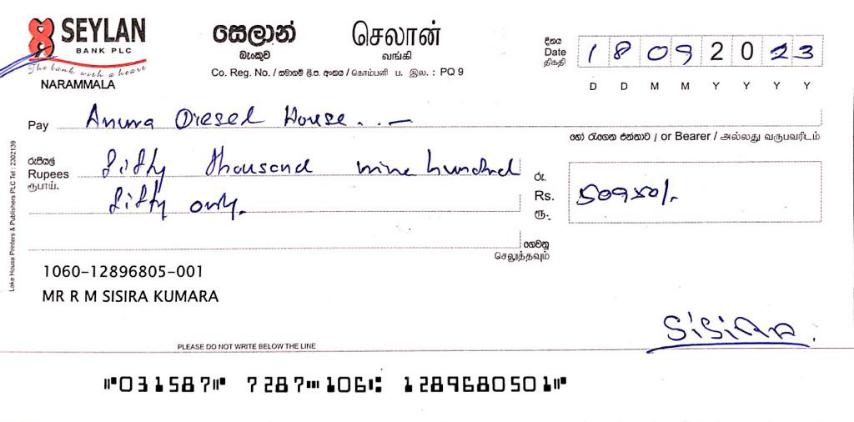 SEYLAN
BANK PLC
The bank with a heart
NARAMMALA
සෙලාන්
බැංකුව
செலான்
வங்கி
Co. Reg. No. / සමාගම් ලි.ප. අංකය / கொம்பனி ப. இல. : PQ 9
දිනය
Date
திகதி
18 09 2023
D D M M Y Y Y Y
Pay Anura Diesel House..-
හෝ රැගෙන එන්නාට / or Bearer / அல்லது வருபவரிடம்
රුපියල්
Rupees
ரூபாய்.
fifty thousand nine hundred
fifty only.
රු.
Rs.
ரூ.
50950/-
ගෙවනු
செலுத்தவும்
1060-12896805-001
MR R M SISIRA KUMARA
SiSiRA
PLEASE DO NOT WRITE BELOW THE LINE
Lake House Printers & Publishers PLC Tel : 2302139
⑈031587⑈ 7287⑉106⑆ 1289680501⑈